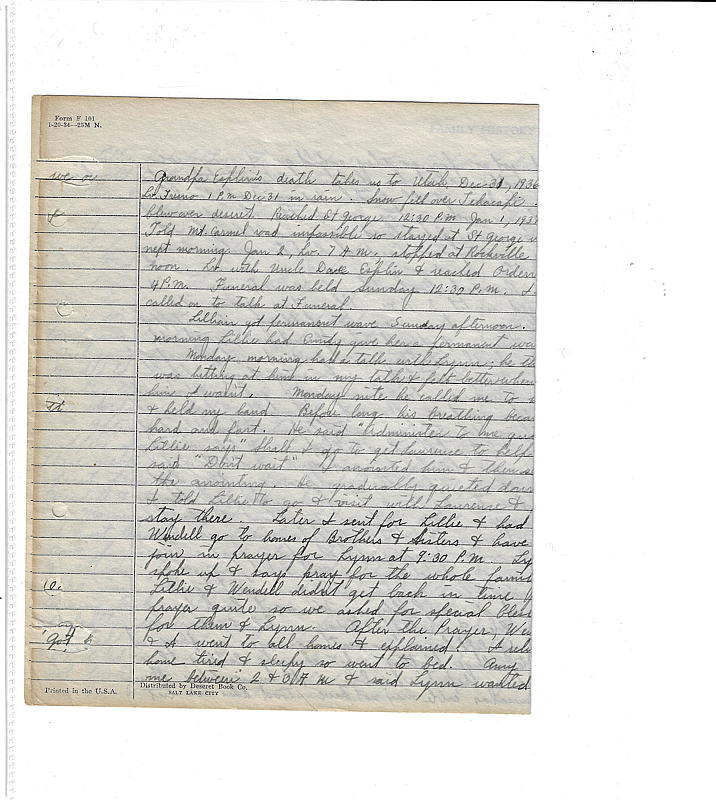 Form F 101
1-20-34—25M N.
FAMILY HISTORY
we or
Grandpa Esplin's death takes us to Utah Dec 31, 1936
Lv. Fresno 1 P.M Dec 31 in rain. Snow fell over Tehacapi.
& blew over desert. Reached St George 12:30 P.M Jan 1, 1937
Told Mt. Carmel road impassible so stayed at St George
next morning. Jan 2, Lv. 7 A.M. stopped at Rockville
noon. Lv with Uncle Dave Esplin & reached Ordern
4 P.M. Funeral was held Sunday 12:30 P.M.
called on to talk at Funeral
Lillian got permanent wave Sunday afternoon.
morning Lillie had Cindy gave her a permanent wa
Monday morning had a talk with Lynn; he th
was hitting at him in my talk & felt better when
him I wasn't. Monday nite he called me to
it & held my hand. Before long his breathing beca
hard and fast. He said "Administer to me
Lillie says "Shall I go to get Laurence to help
said "Don't wait" I anointed him & then se
the anointing. He gradually quieted down
I told Lillie to go & visit with Laurence &
stay there. Later I sent for Lillie & had
Wendell go to homes of Brothers & Sisters & have
join in prayer for Lynn at 9:30 P.M. Ly
spoke up & says pray for the whole famil
Lillie & Wendell didn't get back in time
prayer quite so we asked for special bless
for them & Lynn. After the Prayer, Wen
got & I went to all homes & explained! I
home tired & sleepy so went to bed. Amy
me between 2 & 3 A M & said Lynn wanted
Printed in the U.S.A.
Distributed by Deseret Book Co.
SALT LAKE CITY